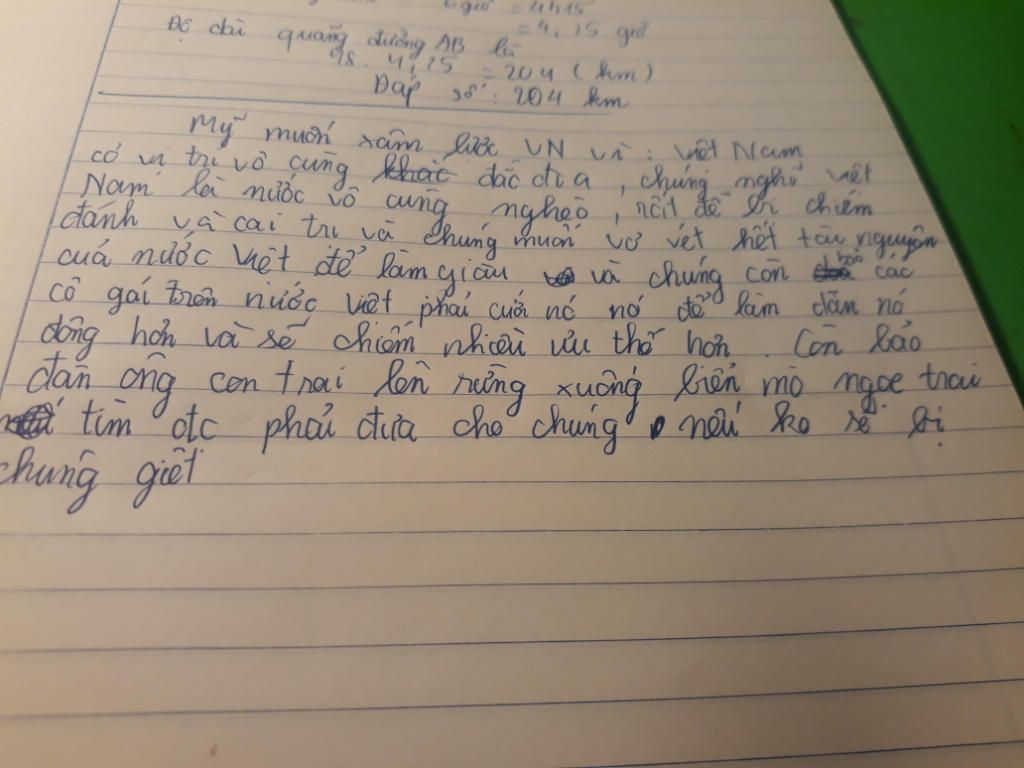 giờ = 4h15
= 4,25 giờ
Độ dài quãng đường AB là
48. 4,25 = 204 (km)
Đáp số: 204 km
Mỹ muốn xâm lược VN vì: Việt Nam
có vị trí vô cùng khác đắc địa, chúng nghĩ việt
Nam là nước vô cùng nghèo, rất dể bị chiếm
đánh và cai trị và chúng muốn vơ vét hết tài nguyên
cuả nước Việt để làm giàu và chúng còn bảo các
cô gái trên nước việt phải cưới nó nó để làm dân nó
đông hơn và sẽ chiếm nhiều ưu thế hơn. Còn bảo
đàn ông con trai lên rừng xuống biển mò ngọc trai
tìm đc phải đưa cho chúng, nếu ko sẽ bị
chúng giết